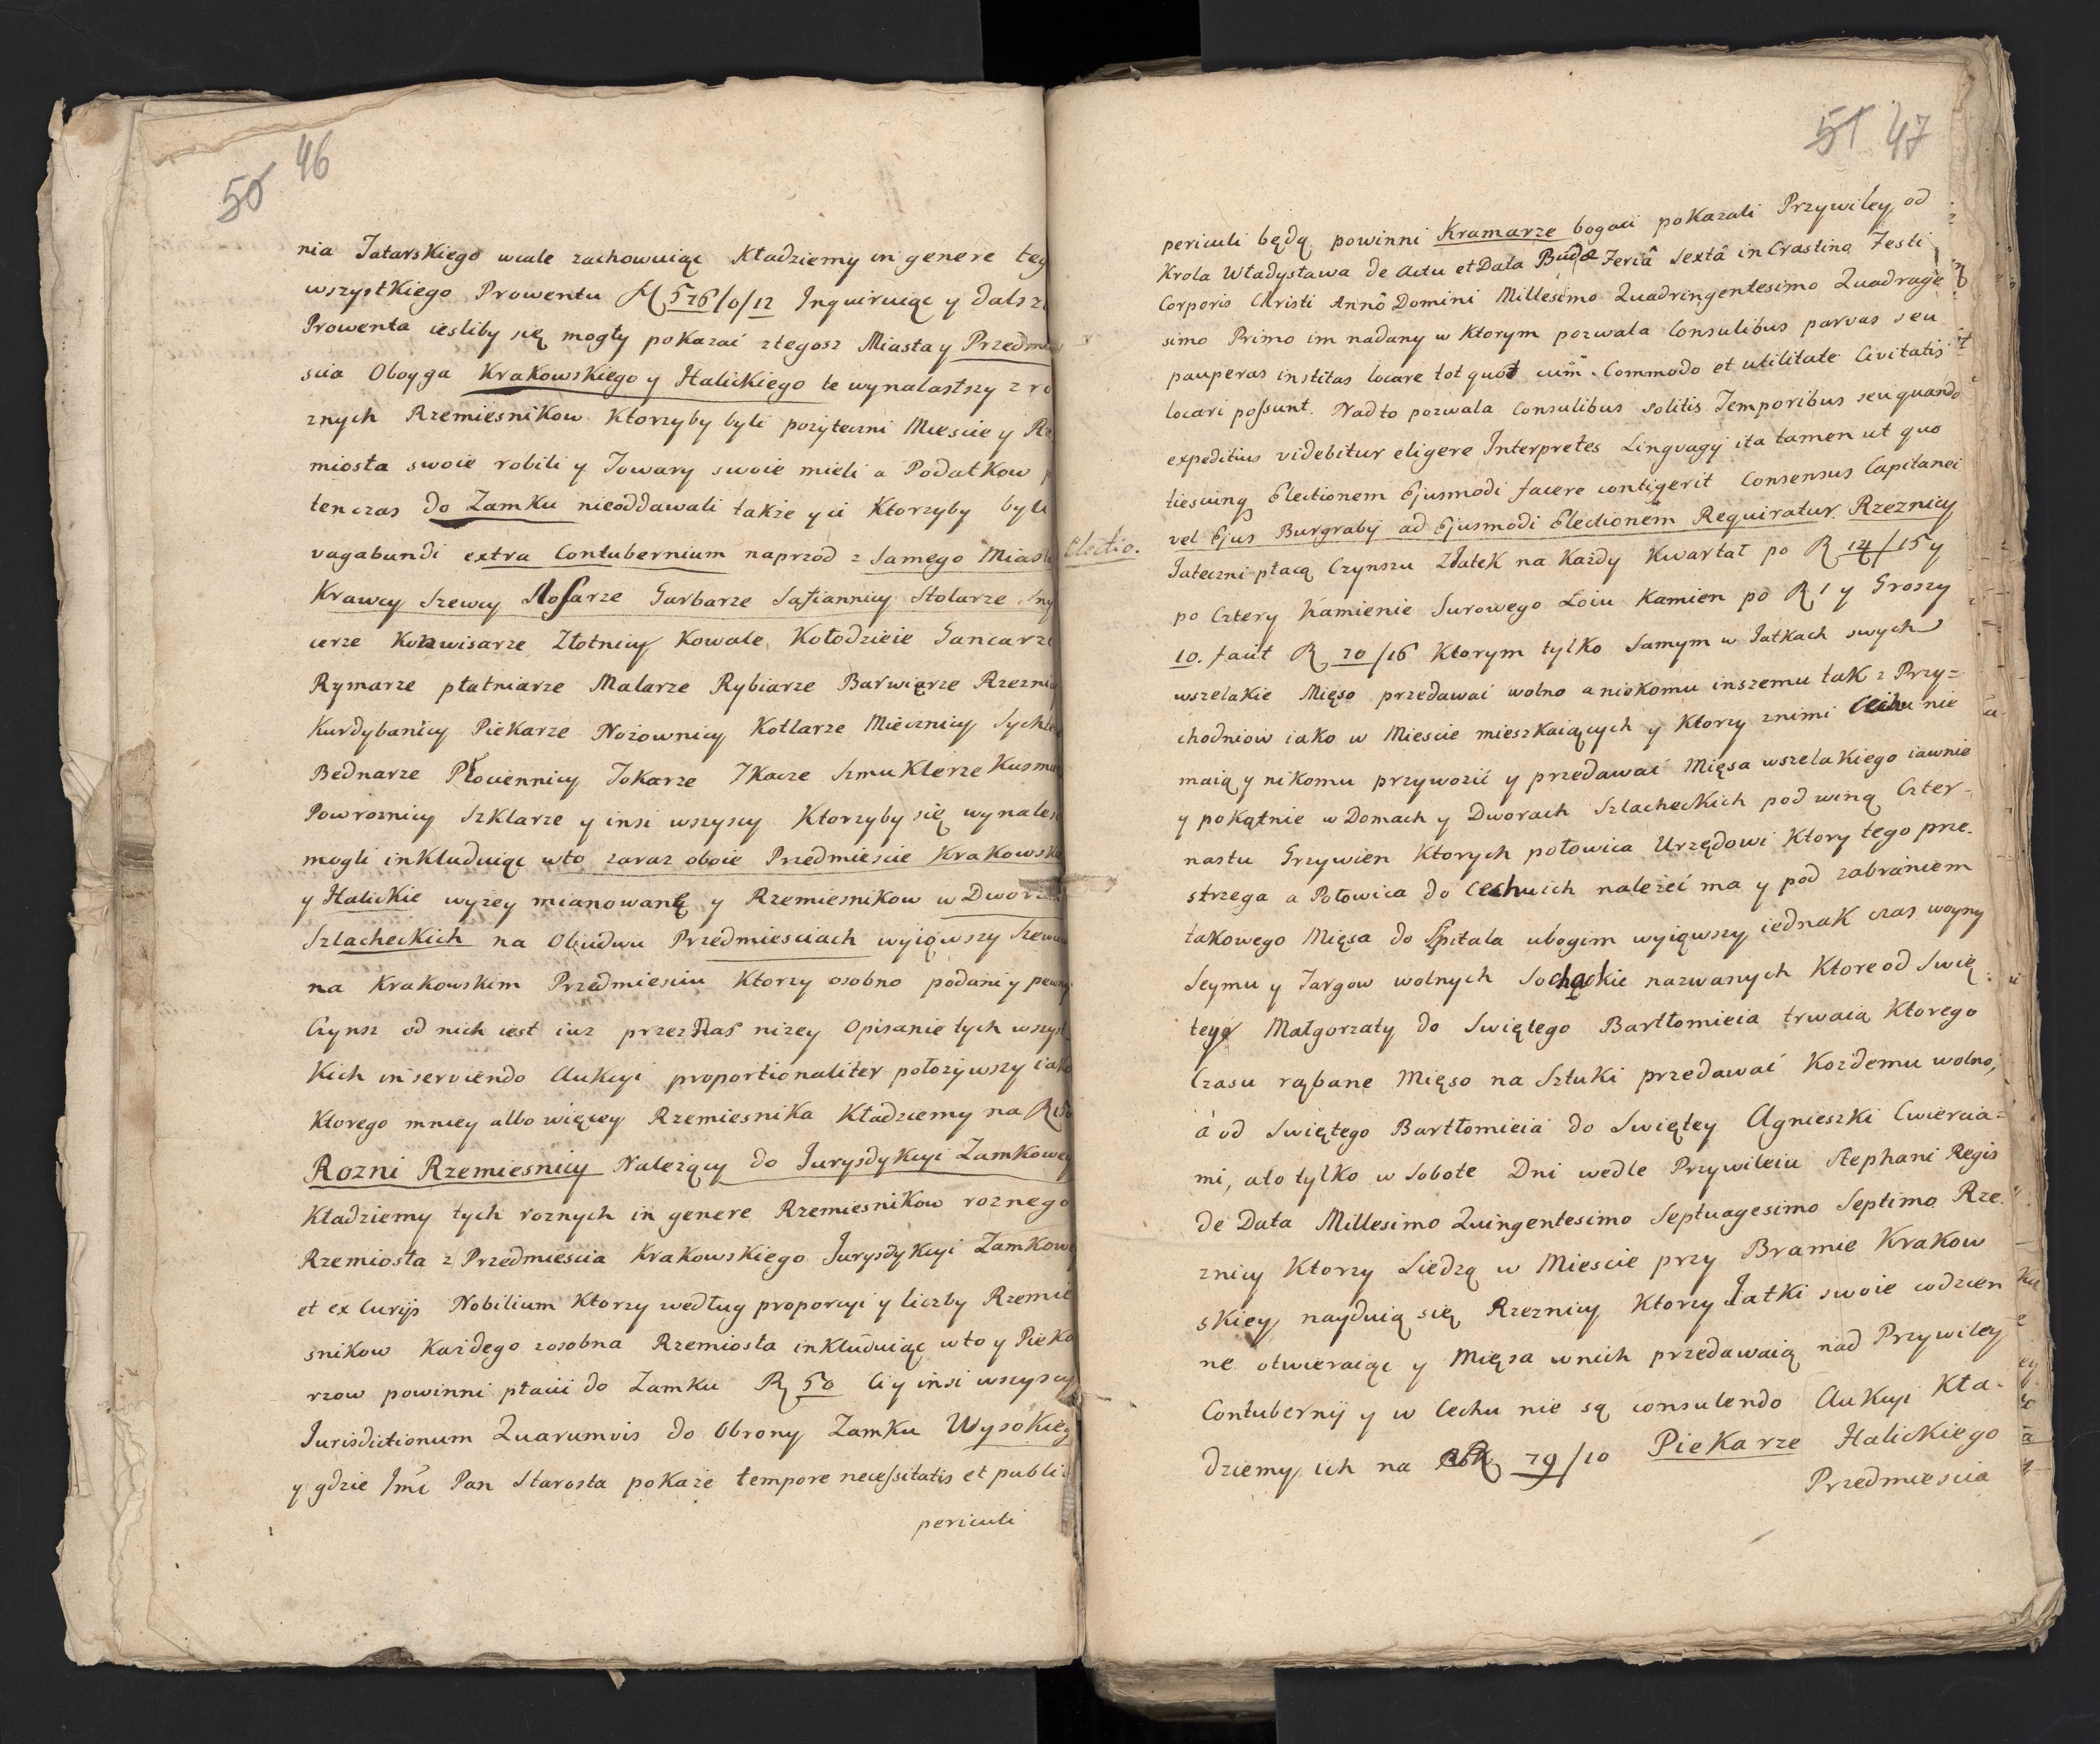 50 46
nia Tatarskiego wcale zachowuiąc Kładziemy in genere teg
wszystkiego Prowentu 576/0/12 Inquiruiąc y dalsz
Prowenta iesliby się mogły pokazać ztegosz Miasta y Przedmie
scia Oboyga Krakowskiego y Halickiego te wynalastszy z ro
znych Rzemiesnikow Ktorzyby byli pozyteczni Miescie y Rze
miosta swoie robili y Towary swoie mieli a Podatkow
tenczas do Zamku nieoddawali takze y ci Ktorzyby byli
vagabundi extra Contubernium naprzod z Samego Miasta
Krawcy Szewcy Slosarze Garbarze Safiannicy Stolarze Sny
cerze Konwisarze Złotnicy Kowale Kołodzieie Gancarze
Rymarze płatniarze Malarze Rybiarze Barwierze Rzeznicy
Kurdybanicy Piekarze Nożownicy Kotlarze Miecznicy Sychte
Bednarze Płociennicy Tokarze Tkacze Szmuklerze Kusmie
Powroznicy Szklarze y insi wszyscy Ktorzyby się wynalesc
mogli inkluduiąc wto zaraz oboie Przedmiescie Krakowskie
y Halickie wyzey mianowane y Rzemiesnikow w Dworach
Szlacheckich na Obudwu Przedmiesciach wyiąwszy Szewcow
na Krakowskim Przedmiesciu Ktorzy osobno podani y pewny
Czynsz od nich iest iuz przez Nas nizey Opisanie tych wszyst
Kich inserviendo Aukcyi proportionaliter połozywszy iako
Ktorego mniey albo więcey Rzemiesnika Kładziemy na R 150
Rozni Rzemiesnicy Nalezący do Jurysdykcyi Zamkowey
Kładziemy tych roznych in genere Rzemiesnikow roznego
Rzemiosta z Przedmiescia Krakowskiego Jurysdykcyi Zamkowe
et ex Curijs Nobilium Ktorzy według proporcyi y liczby Rzemie
snikow Kazdego zosobna Rzemiosta inkluduiąc wto y Pieka
rzow powinni płacić do Zamku R 50 Ci y insi wszyscy
Jurisdictionum Quarumvis do Obrony Zamku Wysokieg
y gdzie Jmć Pan Starosta pokaze tempore necessitatis et public
periculi
51 47
periculi będą powinni Kramarze bogaci pokazali Przywiley od
Krola Władysława de Actu et Data Budæ Feriâ Sextâ in Crastino Festi
Corporis Christi Annô Domini Millesimo Quadringentesimo Quadrage
simo Primo im nadany w Ktorym pozwala Consulibus parvas seu
pauperas institas locare tot quot cum Commodo et utilitate Civitatis
locari possunt. Nadto pozwala Consulibus solitis Temporibus seu quando
expeditius videbitur eligere Interpretes Lingvagij ita tamen ut quo
tiescunq Electionem Ejusmodi facere contigerit Consensus Capitanei
Electio.
vel Ejus Burgrabij ad Ejusmodi Electionem Requiratur. Rzeznicy
Jateczni płacą Czynszu ZJatek na Kazdy Kwartał po R 14/15 y
po Cztery Kamienie Surowego Łoiu Kamien po R 1 y Groszy
10. facit R 70/16 Ktorym tylko Samym w Jatkach swych
wszelakie Mięso przedawać wolno a niokomu inszemu tak z Przy=
chodniow iako w Miescie mieszkaiących y Ktorzy znimi Cechu nie
maią y nikomu przywozić y przedawać Mięsa wszelakiego iawnie
y pokątnie w Domach y Dworach Szlacheckich pod winą Czter-
nastu Grzywien Ktorych połowica Urzędowi Ktory tego prze-
strzega a Połowica do Cechu ich nalezeć ma y pod zabraniem
takowego Mięsa do Szpitala ubogim wyiąwszy iednak czas woyny
Seymu y Targow wolnych Sochąckie nazwanych Ktore od Swię
tego Małgorzaty do Swiętego Bartłomieia trwaią Ktorego
Czasu rąbane Mięso na Sztuki przedawać Kozdemu wolno,
à od Swiętego Bartłomieia do Swiętey Agnieszki Cwiercia=
mi, ato tylko w Sobote Dni wedle Przywileiu Stephani Regis
de Data Millesimo Quingentesimo Septuagesimo Septimo Rze
znicy Ktorzy Siedzą w Miescie przy Bramie Krakow
skiey nayduią się Rzeznicy Ktorzy Jatki swoie codzien
ne otwieraiąc y Mięsa wnich przedawaią nad Przywiley
Contubernij y w Cechu nie są consulendo Aukcyi Kła-
dziemy ich na R 79/10 Piekarze Halickiego
Przedmiescia